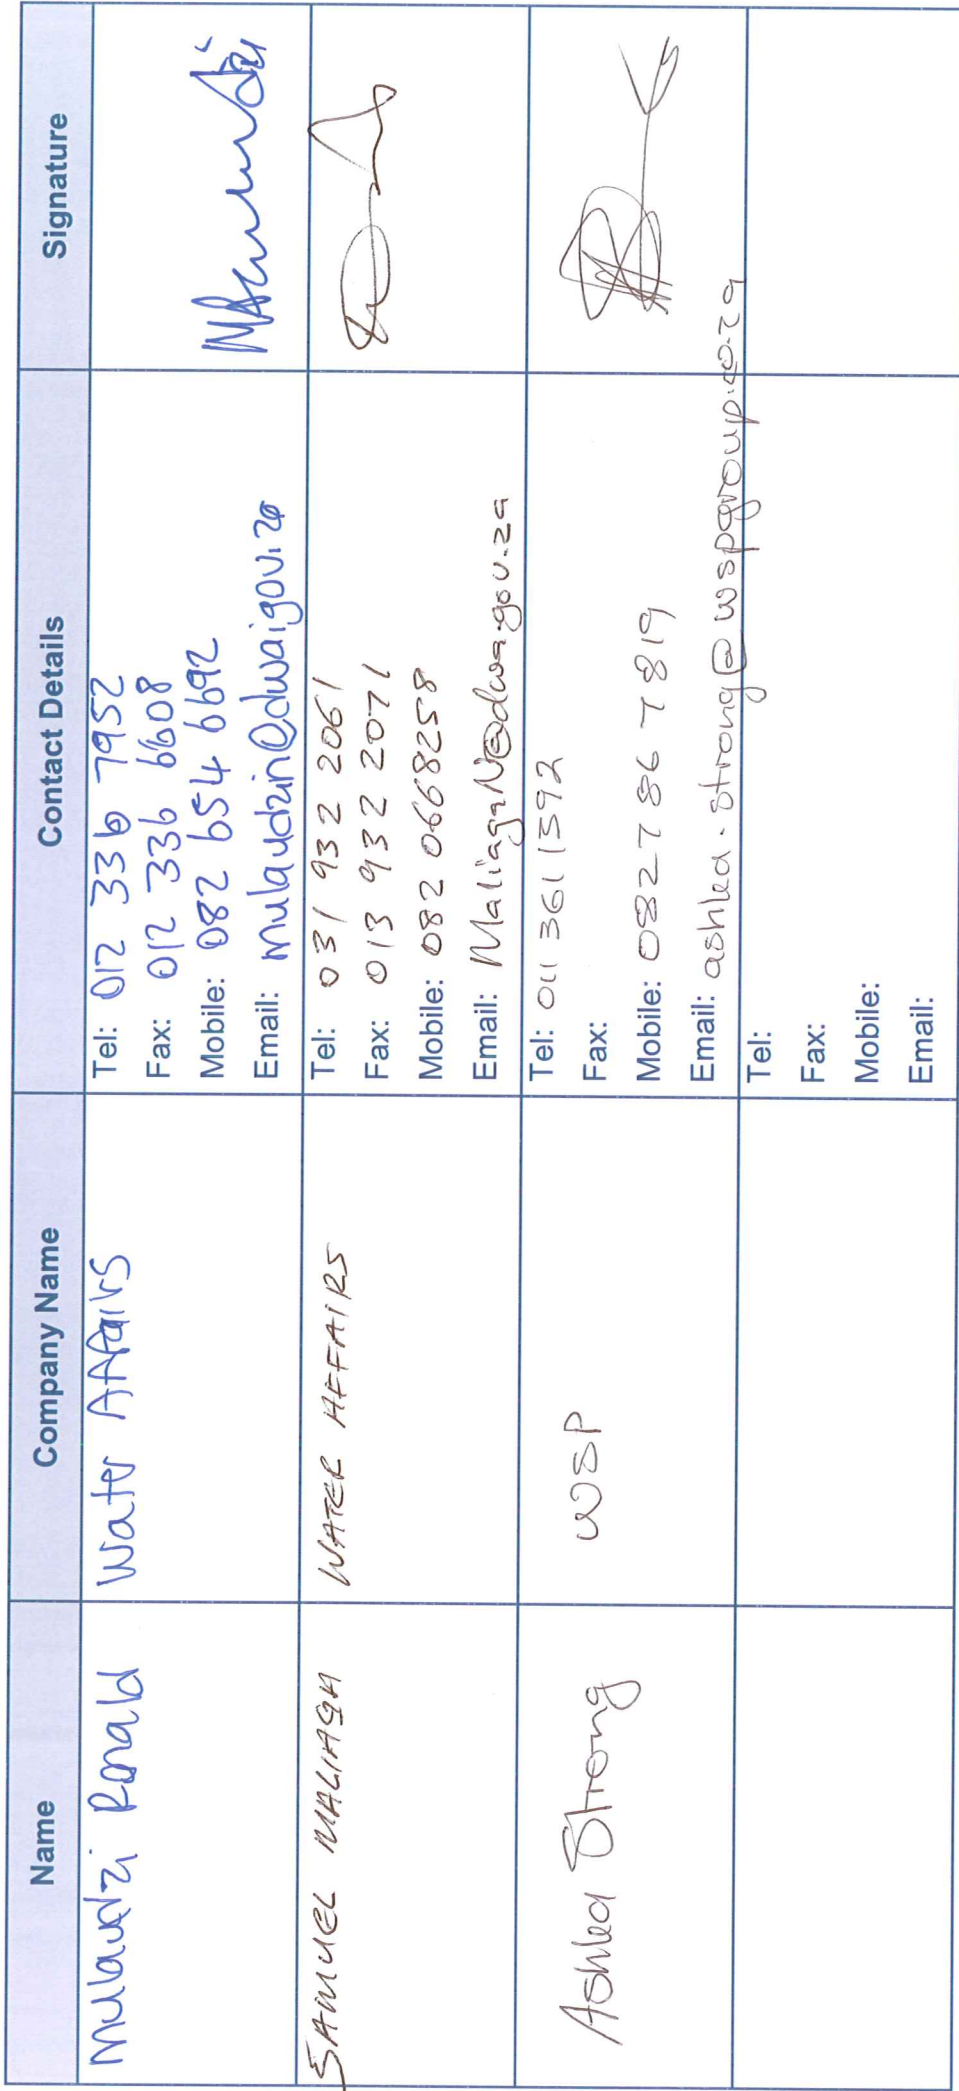 Name Company Name Contact Details Signature
Mulaudzi Ronald Water Affairs Tel: 012 336 7952
Fax: 012 336 6608
Mobile: 082 654 6692
Email: mulaudzin@dwa.gov.za
SAMUEL MALIAGA WATER AFFAIRS Tel: 031 932 2061
Fax: 013 932 2071
Mobile: 082 0668258
Email: MaliagaN@dwa.gov.za
Ashlea Strong WSP Tel: 011 361 1392
Fax:
Mobile: 082 786 7819
Email: ashlea.strong@wspgroup.co.za
Tel:
Fax:
Mobile:
Email: